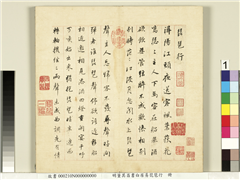 琵琶行
潯陽江頭夜送客楓葉荻花
主人下馬客在船舉酒
欲飲無管絃醉不成歡慘將別
別時茫茫江浸月忽聞水上琵琶
聲主人忘歸客不發尋聲暗問
彈者誰琵琶聲停欲語遲移船
相近邀相見添酒回燈重開宴千呼
萬喚始出來猶抱琵琶半遮面
轉軸撥絃三兩聲未成曲調先有情
故書000210N000000000 明董其昌書白居易琵琶行 冊